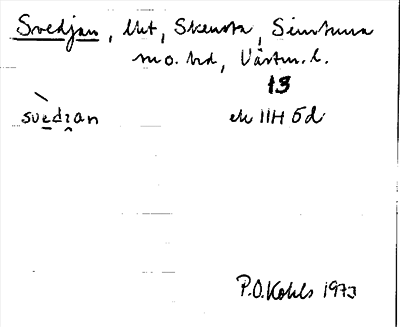 Svedjan, lht, Skensta, Simtuna
sn o. hd, Västm. l.
13
svedɪan ek 11H 5d
P.O. Kohls 1973